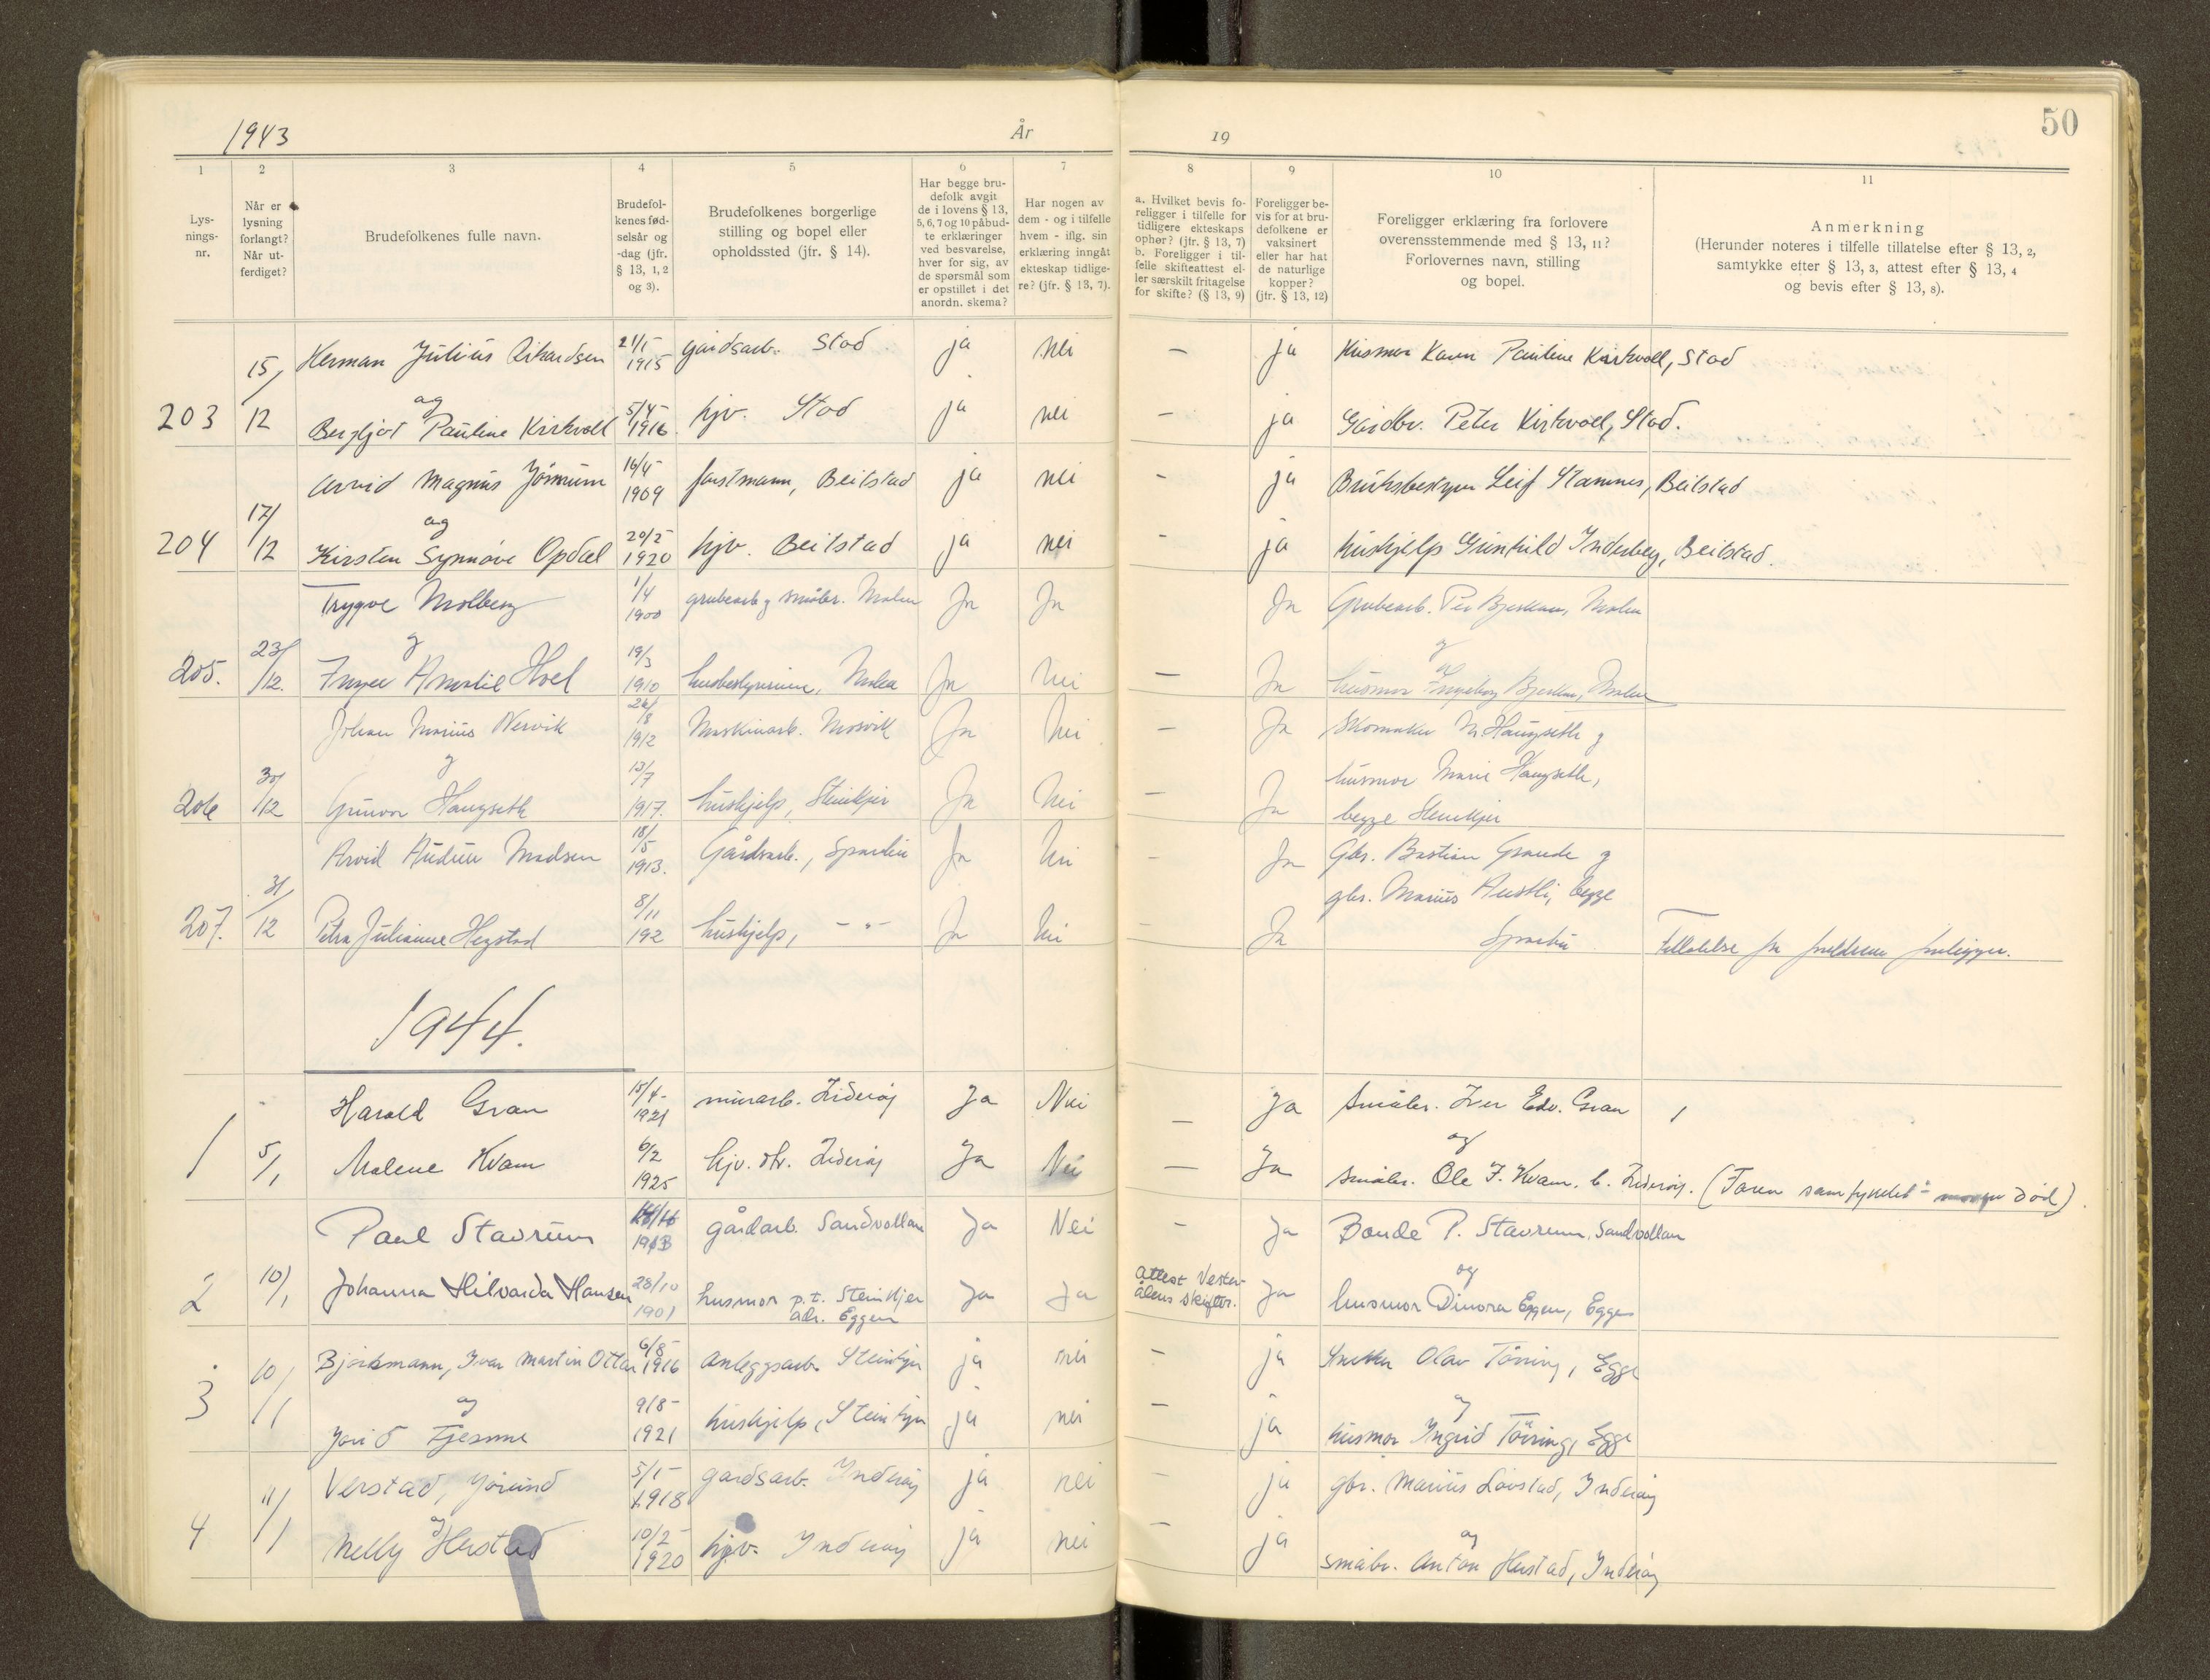 50
1943 År 19
1 2 3 4 5 6 7 8 9 10 11
Lys-
nings-
nr.
Når er
lysning
forlangt?
Når ut-
ferdiget?
Brudefolkenes fulle navn.
Brudefol-
kenes fød-
selsår og
-dag (jfr.
§ 13, 1, 2
og 3).
Brudefolkenes borgerlige
stilling og bopel eller
opholdssted (jfr. § 14).
Har begge bru-
defolk avgit
de i lovens § 13,
5, 6, 7 og 10 påbud-
te erklæringer
ved besvarelse,
hver for sig, av
de spørsmål som
er opstillet i det
anordn. skema?
Har nogen av
dem - og i tilfelle
hvem - iflg. sin
erklæring inngåt
ekteskap tidlige-
re? (jfr. § 13, 7).
a. Hvilket bevis fo-
religger i tilfelle for
tidligere ekteskaps
ophør? (jfr. § 13, 7)
b. Foreligger i til-
felle skifteattest el-
ler særskilt fritagelse
for skifte? (§ 13, 9)
Foreligger be-
vis for at bru-
defolkene er
vaksinert
eller har hat
de naturlige
kopper?
(jfr. § 13, 12)
Foreligger erklæring fra forlovere
overensstemmende med § 13, 11?
Forlovernes navn, stilling
og bopel.
Anmerkning
(Herunder noteres i tilfelle tillatelse efter § 13, 2,
samtykke efter § 13, 3, attest efter § 13, 4
og bevis efter § 13, 8).
15/ Herman Julius Rikardsen 21/5- 1915 gårdsarb. Stod ja nei — ja Husmor Karen Pauline Kirkvoll, Stod
203 12 og Bergljot Pauline Kirkvoll 5/4- 1916 hjv. Stod ja nei — ja Gårdbr. Peter Kirkvoll, Stod.
Arvid Magnus 16/4- 1909 forstmann, Beitstad ja nei - ja Bruksbestyrer Leif Stamnes, Beitstad
204 17/12 og Kirsten Synnøve Opdal 20/2- 1920 hjv. Beitstad ja nei - ja hushjelp Gunhild Inderberg, Beitstad.
Trygve Molberg 1/4 1900 grubearb. og småbr. Malm Ja Ja Ja Grubearb. Per Bjerkan, Malm
205. 23/12. og Inger Amalie Hoel 19/3 1910 husbestyrerinne, Malm Ja Nei — Ja og husmor Ingeborg Bjerkan, Malm
Johan Marius Nervik 26/8 1912 Maskinarb. Mosvik Ja Nei — Ja Skomaker M. Haugseth og
206 30/12 og Gunvor Haugseth 13/7 1917. hushjelp, Steinkjer Ja Nei — Ja husmor Marie Haugseth,
begge Steinkjer
Arvid Madsen 18/5 1913. Gårdsarb., Sparbu Ja Nei - Ja Gbr. Bastian Grande og
gbr. Marius Austli, begge
207. 31/12 Petra Julianne Hegstad 8/11 192 hushjelp, — " — Ja Nei - Ja Sparbu Tillatelse fra foreldrene foreligger.
1944.
Harald Gran 15/4- 1921 Inderøy Ja Nei — Ja Småbr. Iver Edv. Gran
1 5/1 Malene Kvam 6/2 1925 hjv. dtr. Inderøy Ja Nei — Ja og småbr. Ole J. Kvam. b. Inderøy. (Faren samtykket - død).
Paul Stavrum gårdarb. Sandvollan Ja Nei - Ja Bonde P. Stavrum, Sandvollan
2 10/1 Johanna Hilvarda Hansen 28/10 1901 husmor p.t. Steinkjer Ja Ja Attest Vester- Ja og husmor Dinora Eggen, Egge
adr. Eggen ålens skifter.
Bjørkmann, Ivar Martin Ottar 6/8- 1916 Anleggsarb. Steinkjer ja nei — ja Snekker Olav Tøring, Egge
3 10/1 og Jorid Fjesme 9/8- 1921 hushjelp, Steinkjer ja nei — ja og husmor Ingrid Tøring, Egge
Verstad, Jørund 5/1- 1918 gardsarb. Inderøy ja nei — ja gbr. Marius Løvstad, Inderøy
4 11/1 og Nelly Hustad 10/2- 1920 hjv. Inderøy ja nei — ja og småbr. Anton Hustad, Inderøy